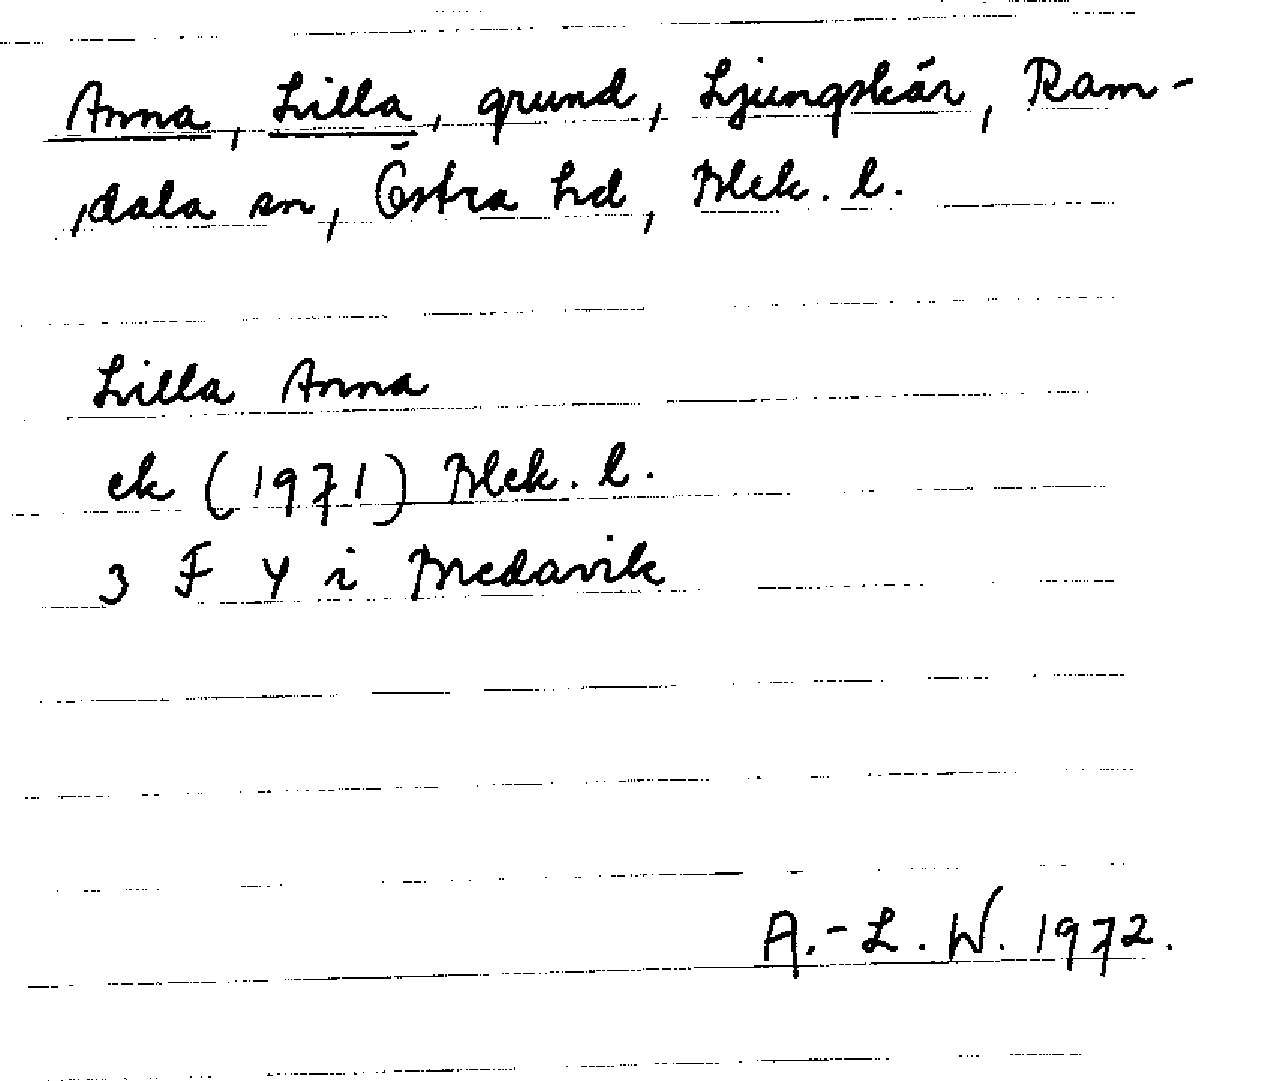 Anna, Lilla, grund, Ljungskär, Ram-
dala sn, Östra hd, Blek. l.
Lilla Anna
ek (1971) Blek. l.
3 F Y i Bredavik
A.-L. W. 1972.